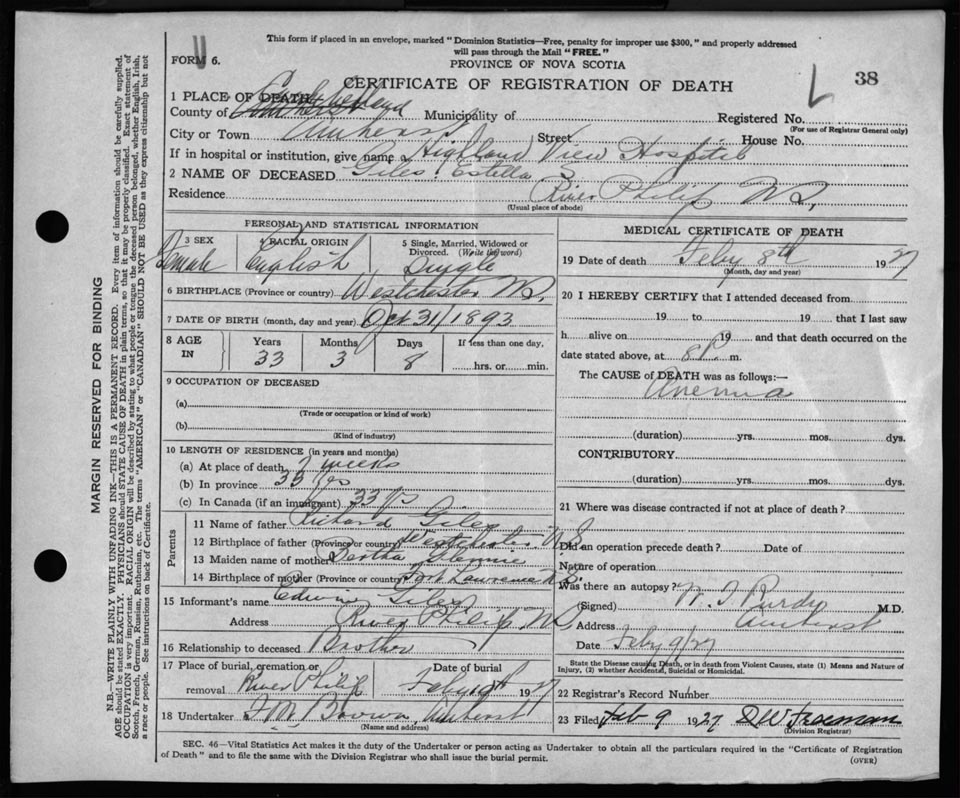 This form if placed in an envelope, marked "Dominion Statistics—Free, penalty for improper use $300," and properly addressed
will pass through the Mail "FREE."
FORM 6.
PROVINCE OF NOVA SCOTIA
CERTIFICATE OF REGISTRATION OF DEATH
38
1 PLACE OF DEATH
County of Cumberland Municipality of
Registered No.
(For use of Registrar General only)
City or Town Amherst Street House No.
If in hospital or institution, give name Highland View Hospital
2 NAME OF DECEASED Giles, Estella
Residence River Philip N.S.
(Usual place of abode)
PERSONAL AND STATISTICAL INFORMATION
3 SEX
Female
4 RACIAL ORIGIN
English
5 Single, Married, Widowed or Divorced. (Write the word)
Single
6 BIRTHPLACE (Province or country) Westchester N.S.
7 DATE OF BIRTH (month, day and year) Oct 31/1893
8 AGE IN
Years Months Days If less than one day.
33 3 8 hrs. or min.
9 OCCUPATION OF DECEASED
(a)
(Trade or occupation or kind of work)
(b)
(Kind of industry)
10 LENGTH OF RESIDENCE (in years and months)
(a) At place of death 2 weeks
(b) In province 33 yrs
(c) In Canada (if an immigrant) 33 yrs
Parents
11 Name of father Richard Giles
12 Birthplace of father (Province or country) Westchester N.S.
13 Maiden name of mother Bertha
14 Birthplace of mother (Province or country) Fort Lawrence N.S.
15 Informant's name Edwin Giles
Address River Philip, N.S.
16 Relationship to deceased Brother
17 Place of burial, cremation or removal River Philip
Date of burial Feby 10th 1927
18 Undertaker F M Brown, Amherst
(Name and address)
MEDICAL CERTIFICATE OF DEATH
19 Date of death Feby 8th 1927
(Month, day and year)
20 I HEREBY CERTIFY that I attended deceased from
19 to 19 that I last saw
h alive on 19 and that death occurred on the
date stated above, at 8 P. m.
The CAUSE of DEATH was as follows:—
Anemia
(duration) yrs. mos. dys.
CONTRIBUTORY
(duration) yrs. mos. dys.
21 Where was disease contracted if not at place of death?
Did an operation precede death? Date of
Nature of operation
Was there an autopsy?
(Signed) W. T. Purdy M.D.
Address Amherst
Date Feby 9/27
State the Disease causing Death, or in death from Violent Causes, state (1) Means and Nature of
Injury, (2) whether Accidental, Suicidal or Homicidal.
22 Registrar's Record Number
23 Filed Feb 9 1927 D W Freeman
(Division Registrar)
SEC. 46—Vital Statistics Act makes it the duty of the Undertaker or person acting as Undertaker to obtain all the particulars required in the "Certificate of Registration
of Death" and to file the same with the Division Registrar who shall issue the burial permit.
(OVER)
MARGIN RESERVED FOR BINDING
N.B.—WRITE PLAINLY WITH UNFADING INK—THIS IS A PERMANENT RECORD. Every item of information should be carefully supplied.
AGE should be stated EXACTLY. PHYSICIANS should STATE CAUSE OF DEATH in plain terms, so that it may be properly classified. Exact statement of
OCCUPATION is very important. RACIAL ORIGIN will be described by stating to what people or tongue the deceased person belonged, whether English, Irish,
Scotch, French, German, Russian, Ruthenian, etc. The terms "AMERICAN" or "CANADIAN" SHOULD NOT BE USED as they express citizenship but not
a race or people. See instructions on back of Certificate.